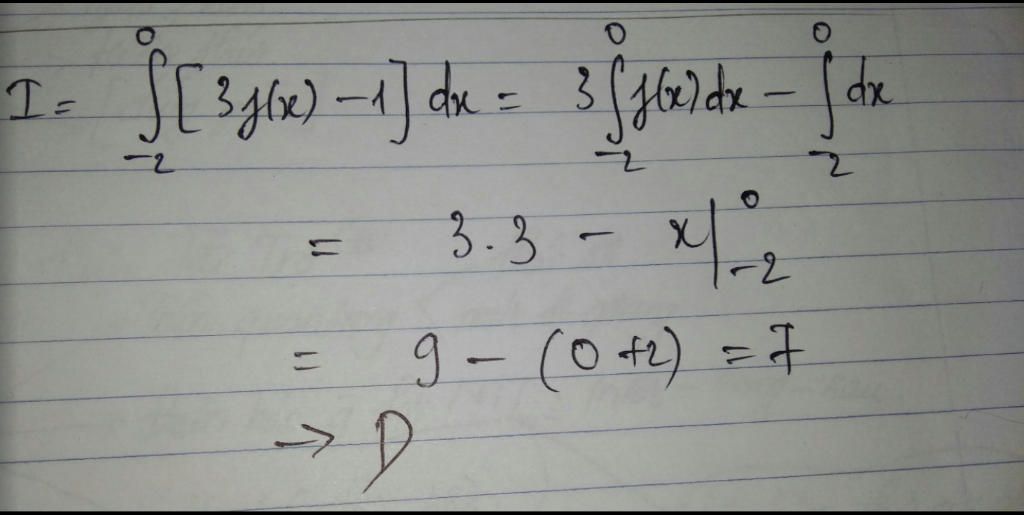 I = ∫_{-2}^{0} [3f(x) – 1] dx = 3 ∫_{-2}^{0} f(x) dx – ∫_{-2}^{0} dx
= 3.3 – x |_{-2}^{0}
= 9 – (0 + 2) = 7
→ D